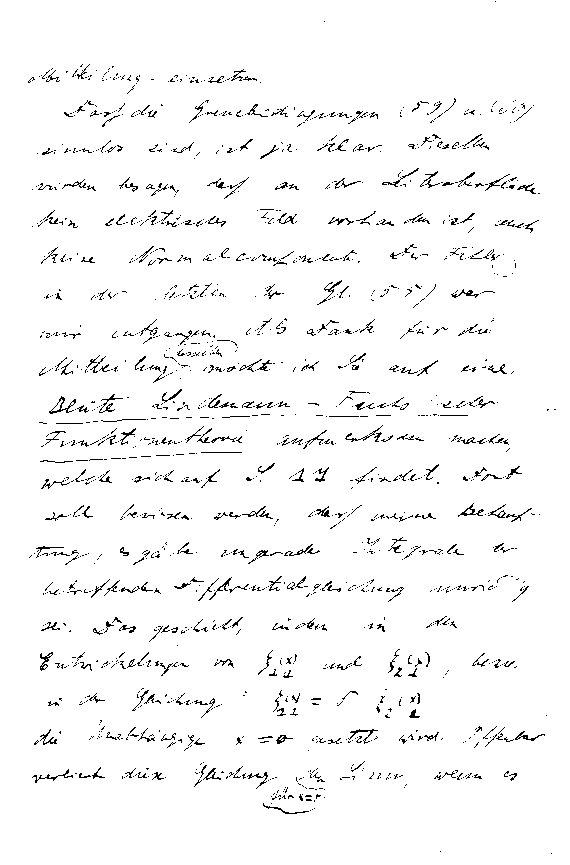 Mitteilung einsetzen.
Daß die Grenzbedingungen (59) u. (60)
sinnlos sind, ist ja klar. Dieselben
würden besagen, daß an der Leiteroberfläche
kein elektrisches Feld vorhanden ist, auch
keine Normalcomponente. Der Fehler
in der letzten der Gl. (55) war
mir entgangen. Als Dank für die
Mitteilung desselben möchte ich Sie auf eine
Blüte Lindemann-Fuchs'scher
Funktionentheorie aufmerksam machen,
welche sich auf S. 27 findet. Dort
soll bewiesen werden, daß meine Behaup-
tung, es gäbe ungerade Integrale der
betreffenden Differentialgleichung unrichtig
sei. Das geschieht, indem in den
Entwickelungen von (x) und (x), bezw.
in der Gleichung (x) = (x)
die Unabhängige x = 0 gesetzt wird. Offenbar
verliert diese Gleichung den Sinn, wenn es
für x=0